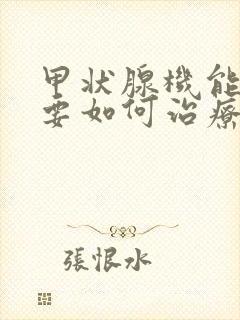 甲状腺機能
要如何治療
張恨水